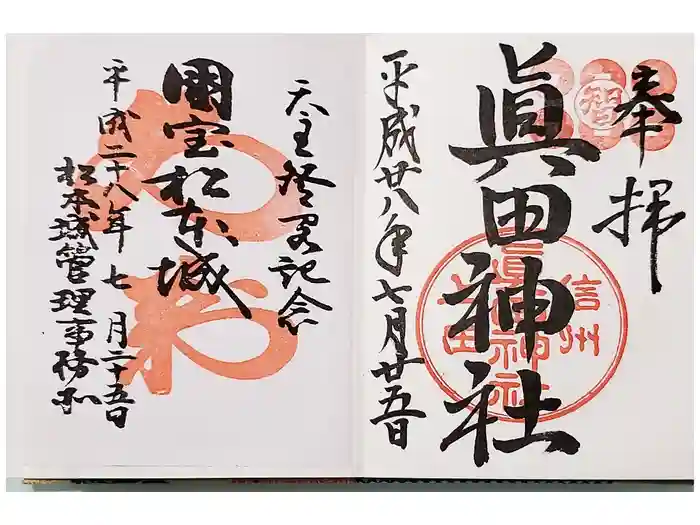 奉拝
智
眞田神社
信州
上田
眞田神社
平成廿八年七月廿五日
天主登閣記念
國宝松本城
平成二十八年七月二十五日
松本城管理事務所